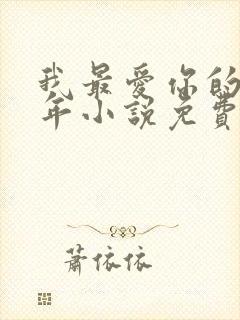 我最愛你的
年小説免費
蕭依依